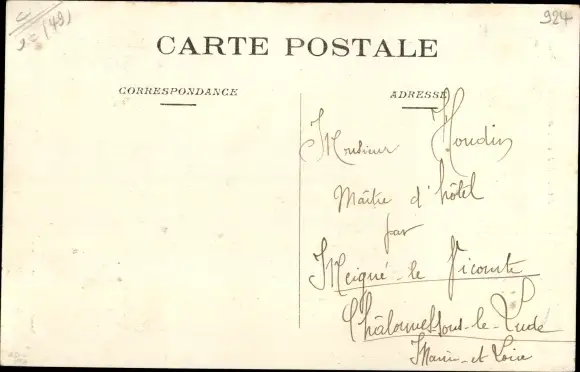 (49)
924
CARTE POSTALE
CORRESPONDANCE
ADRESSE
Monsieur Houdin
Maître d'hôtel
par
Meigné-le Vicomte
Châlonnes-sous-le-Lude
Maine-et-Loire